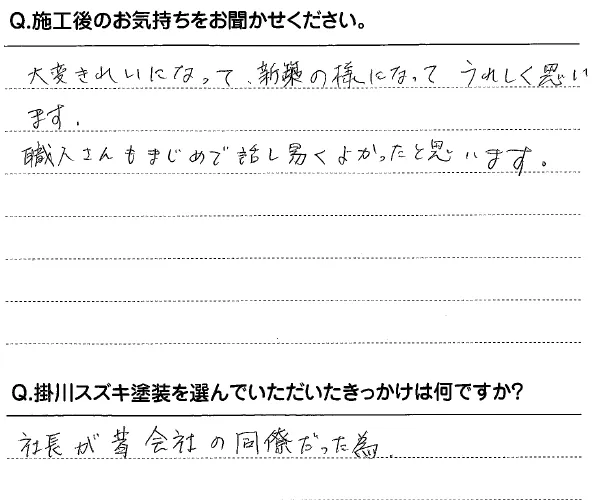 Q.施工後のお気持ちをお聞かせください。
大変きれいになって、新築の様になって うれしく思い
ます.
職人さんもまじめで話し易くよかったと思います。
Q.掛川スズキ塗装を選んでいただいたきっかけは何ですか?
社長が昔会社の同僚だった為.